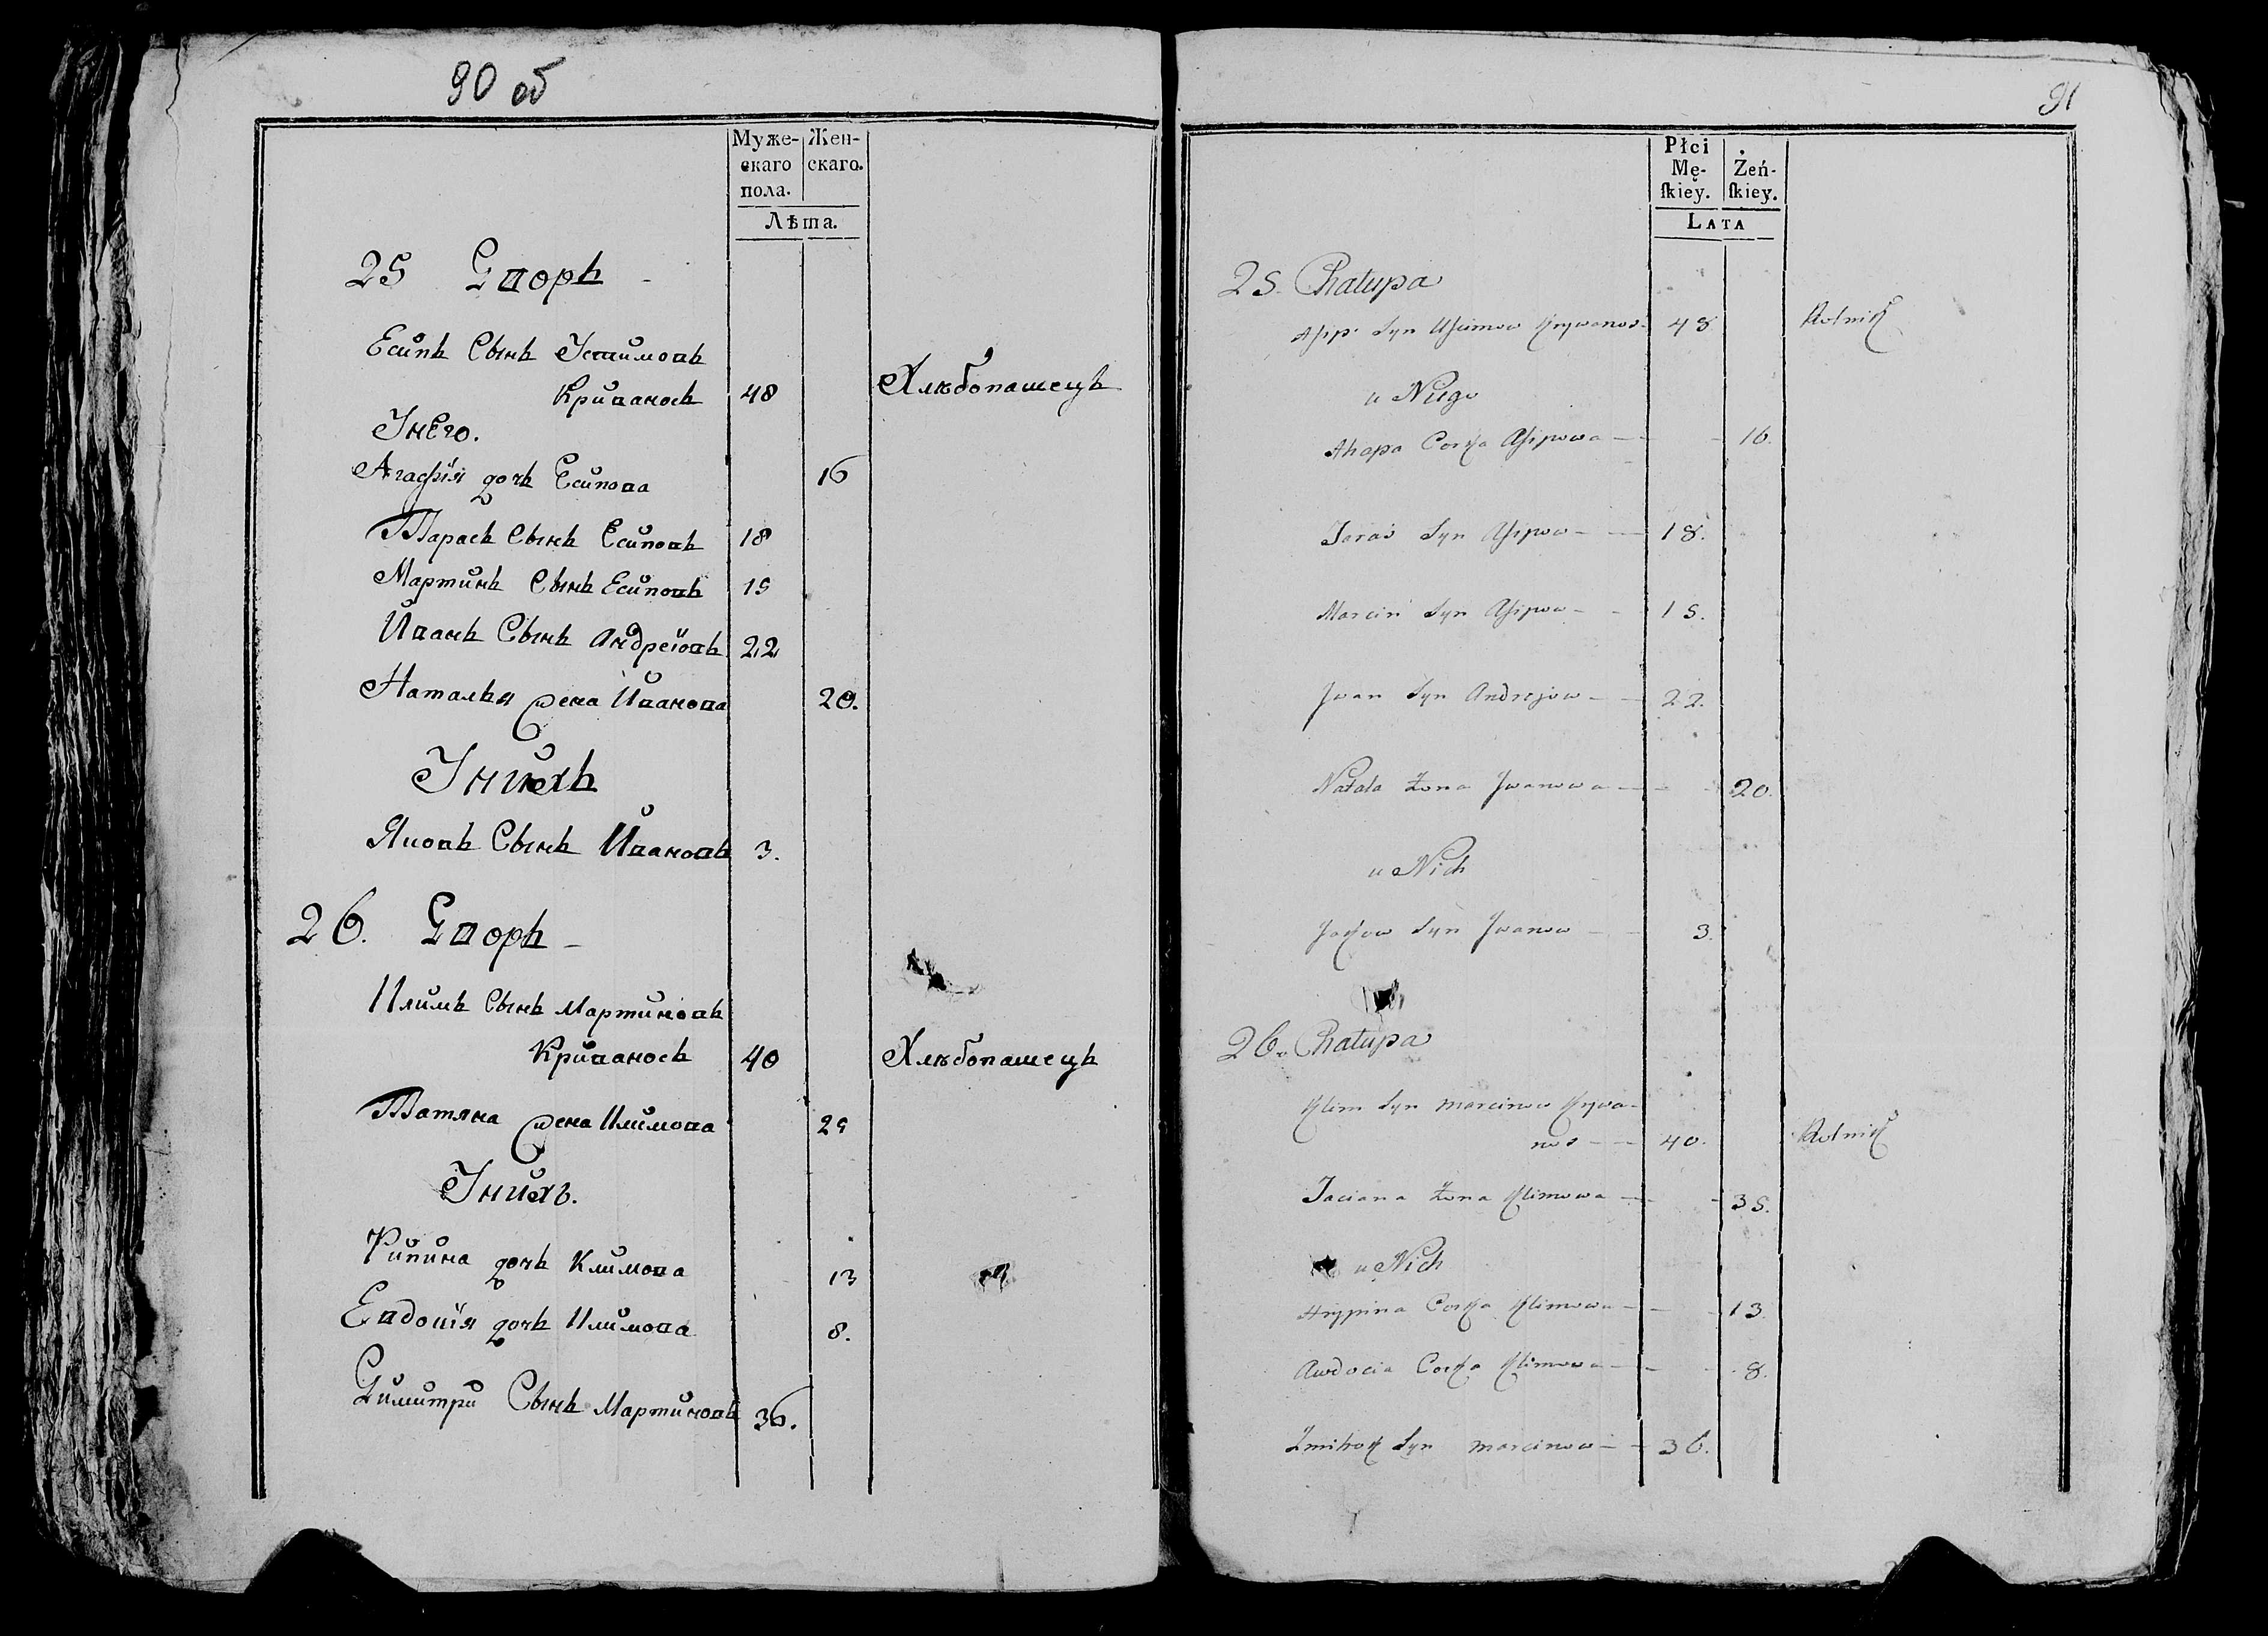 90 об
Муже-
скаго
пола.
Жен-
скаго.
Лѣта.
25 Дворъ -
Есипъ Сынъ Устимовъ
Криваносъ 48 Хлѣбопашецъ
Унего.
Агафія дочь Есипова 16
Тарасъ Сынъ Есиповъ 18
Мартинъ Сынъ Есиповъ 15
Иванъ Сынъ Андреіовъ 22
Наталья жена Иванова 20.
Унихъ
Яковъ Сынъ Ивановъ 3.
26. Дворъ -
Климъ Сынъ Мартиновъ
Криваносъ 40 Хлѣбопашецъ
Татяна жена Климова 25
Унихъ.
Рипина дочь Климова 13
Евдокія дочь Климова 8.
Димитри Сынъ Мартиновъ 36.
91
Płci
Mę-
ſkiey.
Żeń-
ſkiey.
LATA
25. Chałupa
Asip Syn Uscimow Krywanos 48 Rolnik
u Niego
Ahapa Corka Asipowa 16.
Taras Syn Asipow 18.
Marcin Syn Asipow 15.
Jwan Syn Andrejow 22.
Natala Żona Jwanowa 20.
u Nich
Jakow Syn Jwanow 3.
26. Chałupa
Klim Syn Marcinow Krywa-
nos 40. Rolnik
Taciana Żona Klimowa 35.
u Nich
Hrypina Corka Klimowa 13.
Awdocia Corka Klimowa 8.
Zmitrok Syn Marcinow 36.